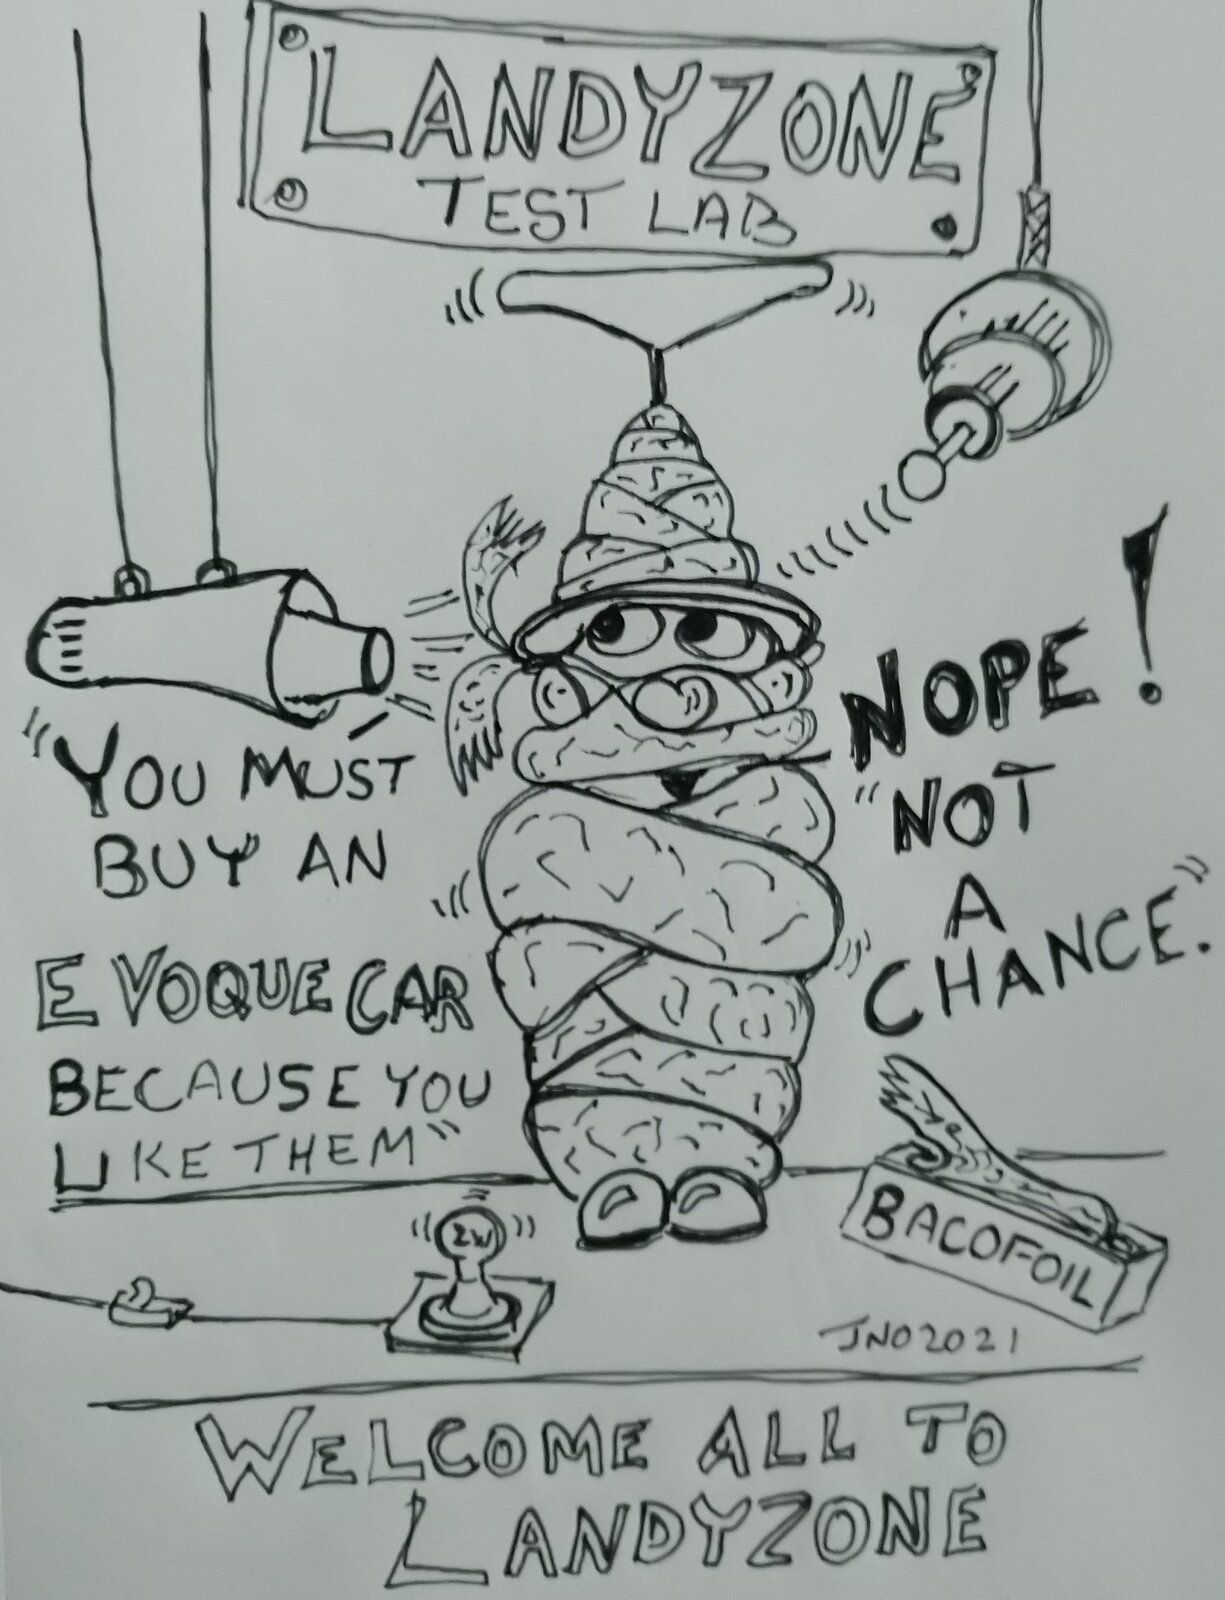 LANDYZONE
TEST LAB
"YOU MUST
BUY AN
EVOQUE CAR
BECAUSE YOU
LIKE THEM"
NOPE!
"NOT
A
CHANCE."
2W
BACOFOIL
JNO2021
WELCOME ALL TO
LANDYZONE